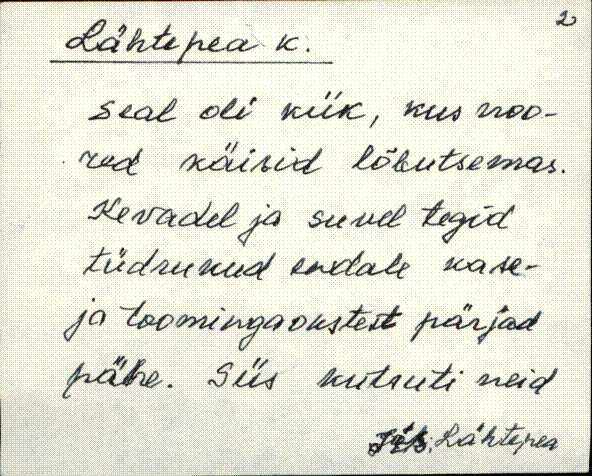 2
Lähtepea k.
Seal oli kiik, kus noo-
red käisid lõbutsemas.
Kevadel ja suvel tegid
tüdrukud endale kase-
ja toomingaokstest pärjad
pähe. Siis kutsuti neid
Lähtepea